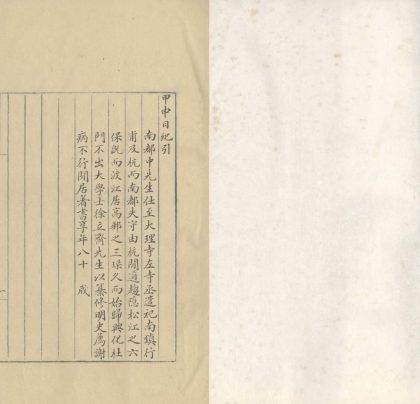 甲申日紀引
南都中先生仕至大理寺左寺丞遣祀南鎮行
甫及杭而南都失守由杭間道趨隱松江之六
保既而渡江居高郵之三垛久而始歸興化杜
門不出大學士徐立齊先生以纂修明史薦謝
病不行閒居著書享年八十 歲